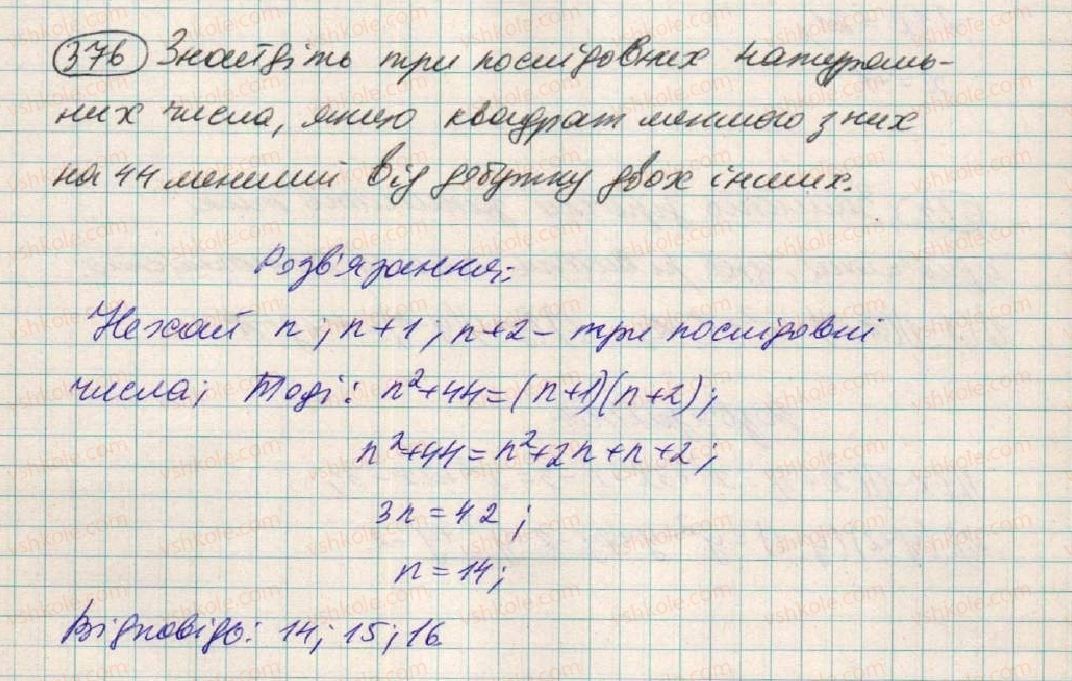 376 Знайдіть три послідовних натураль-
них числа, якщо квадрат меншого з них
на 44 менший від добутку двох інших.
Розв'язання:
Нехай n; n+1; n+2 - три послідовні
числа; Тоді: n²+44=(n+1)(n+2);
n²+44=n²+2n+n+2;
3n=42;
n=14;
Відповідь: 14; 15; 16